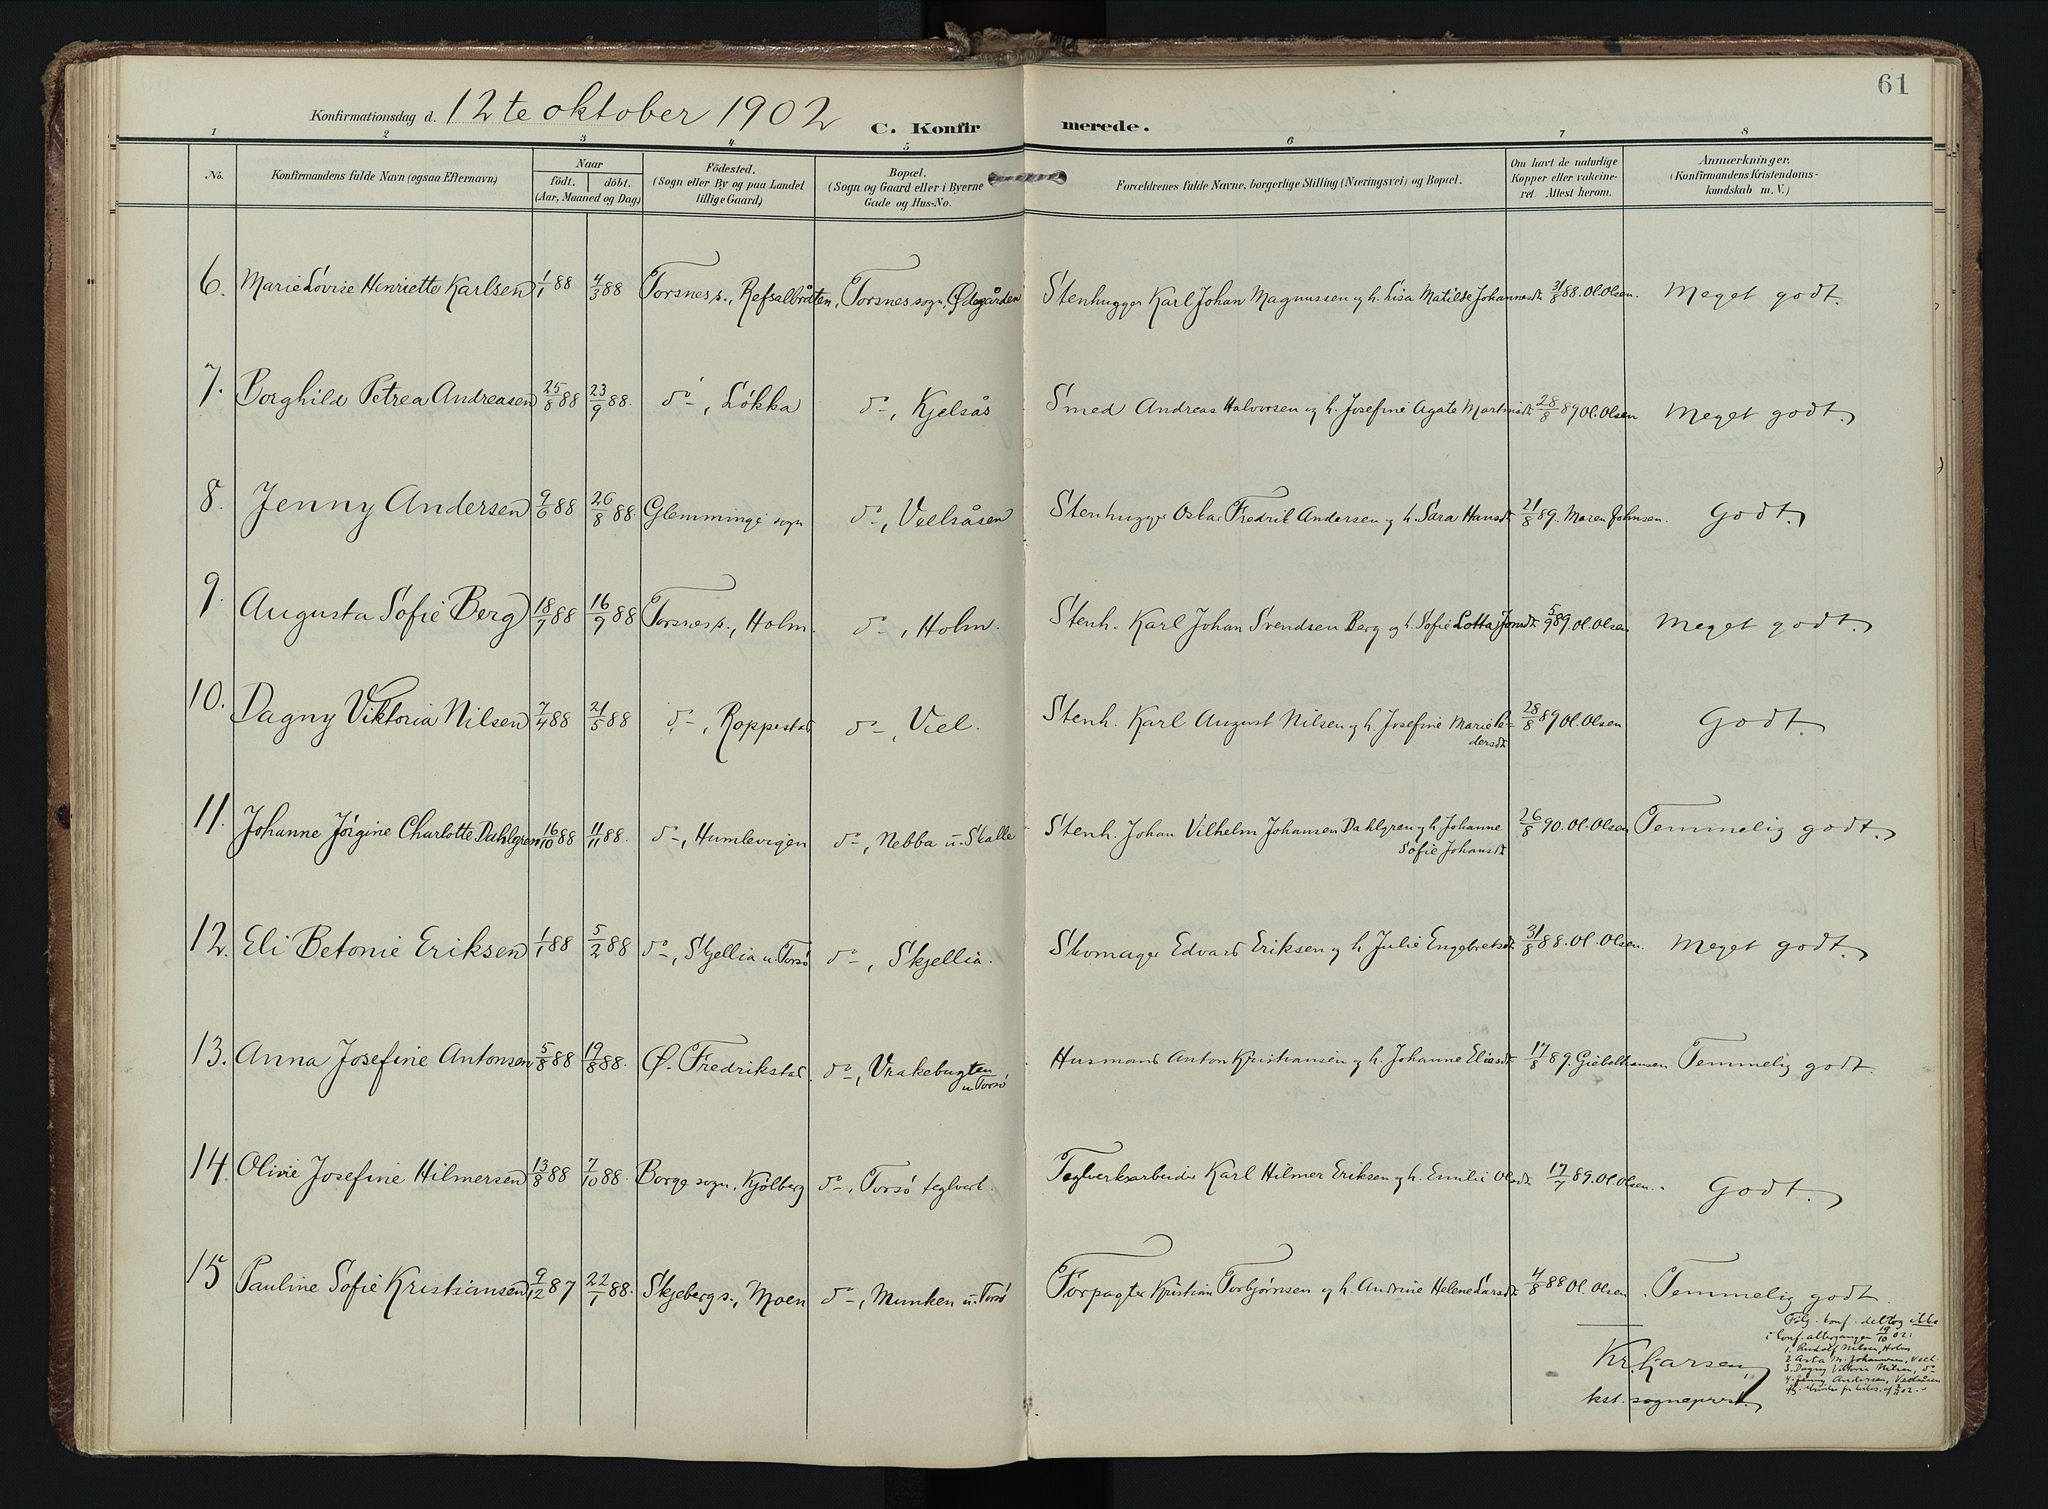 61
Konfirmationsdag d. 12te oktober 1902 C. Konfirmerede.
1 2 3 4 5 6 7 8
No. Konfirmandens fulde Navn (ogsaa Efternavn) Naar födt. döbt. (Aar, Maaned og Dag) Födested. (Sogn eller By og paa Landet tillige Gaard) Bopæl. (Sogn og Gaard eller i Byerne Gade og Hus-No. Forældrenes fulde Navne, borgerlige Stilling (Næringsvei) og Bopæl. Om havt de naturlige Kopper eller vakcineret. Attest herom. Anmærkninger. (Konfirmandens Kristendomskundskab m. V.)
6. Marie Lovise Henriette Karlsen 1/1 88 4/3 88 Torsnes s., Refsalbråten, Torsnes sogn, Ødegården Stenhugger Karl Johan Magnussen og h. Lisa Matilde Johannesdt. 31/8 88. Ol. Olsen. Meget godt.
7. Borghild Petrea Andreasen 25/8 88 23/9 88. do, Løkka do, Kjelsås Smed Andreas Halvorsen og h. Josefine Agate Martinsdt. 28/8 89 Ol. Olsen Meget godt.
8. Jenny Andersen 9/6 88 26/8 88. Glemminge sogn do, Veelsåsen Stenhugger Oskar Fredrik Andersen og h. Sara Hansdt. 21/8 89. Maren Johnsen. Godt.
9. Augusta Sofie Berg 18/7 88 16/9 88 Torsnes s., Holm. do, Holm. Stenh. Karl Johan Svendsen Berg og h. Sofie Lotta Jonsdt. 5/9 89. Ol. Olsen Meget godt.
10. Dagny Viktoria Nilsen 7/4 88 21/5 88 do, Roppestad do, Veel. Stenh. Karl August Nilsen og h. Josefine Marie Pedersdt. 28/8 89 Ol. Olsen Godt.
11. Johanne Jørgine Charlotte Dahlgren 16/10 88 11/11 88. do, Humlevigen do, Nebba u. Skalle Stenh. Johan Vilhelm Johansen Dahlgren og h. Johanne Sofie Johansdt. 26/8 90. Ol. Olsen Temmelig godt.
12. Eli Betonie Eriksen 1/1 88 5/2 88 do, Skjellia u. Torsø do, Skjellia. Skomager Edvard Eriksen og h. Julie Engebretsdt. 31/8 88. Ol. Olsen. Meget godt.
13. Anna Josefine Antonsen 5/8 88 19/8 88. Ø. Fredrikstad. do, Vrakebugten u. Torsø Husmand Anton Kristiansen og h. Johanne Eliasdt. 17/8 89. Giebelhausen Temmelig godt.
14. Olivie Josefine Hilmersen 13/8 88 7/10 88. Borge sogn, Kjølberg do, Torsø teglverk. Teglverksarbeider Karl Hilmer Eriksen og h. Emilie Olsdt. 17/7 89. Ol. Olsen. Godt.
15 Pauline Sofie Kristiansen 9/12 87 22/1 88. Skjeberg s., Moen do, Munken u. Torsø Forpagter Kristian Torbjørnsen og h. Andrine Helene Larsdt. 4/8 88 Ol. Olsen. Temmelig godt.
Følg. konf. deltog ikke
i konf. altergangen 19/10 02:
1. Rudolf Nilsen, Holm
2. Asta M. Johannesen, Veel.
3. Dagny Viktoria Nilsen, do
4. Jenny Andersen, Veelsåsen
Kr. Larsen,
kst. sogneprest.